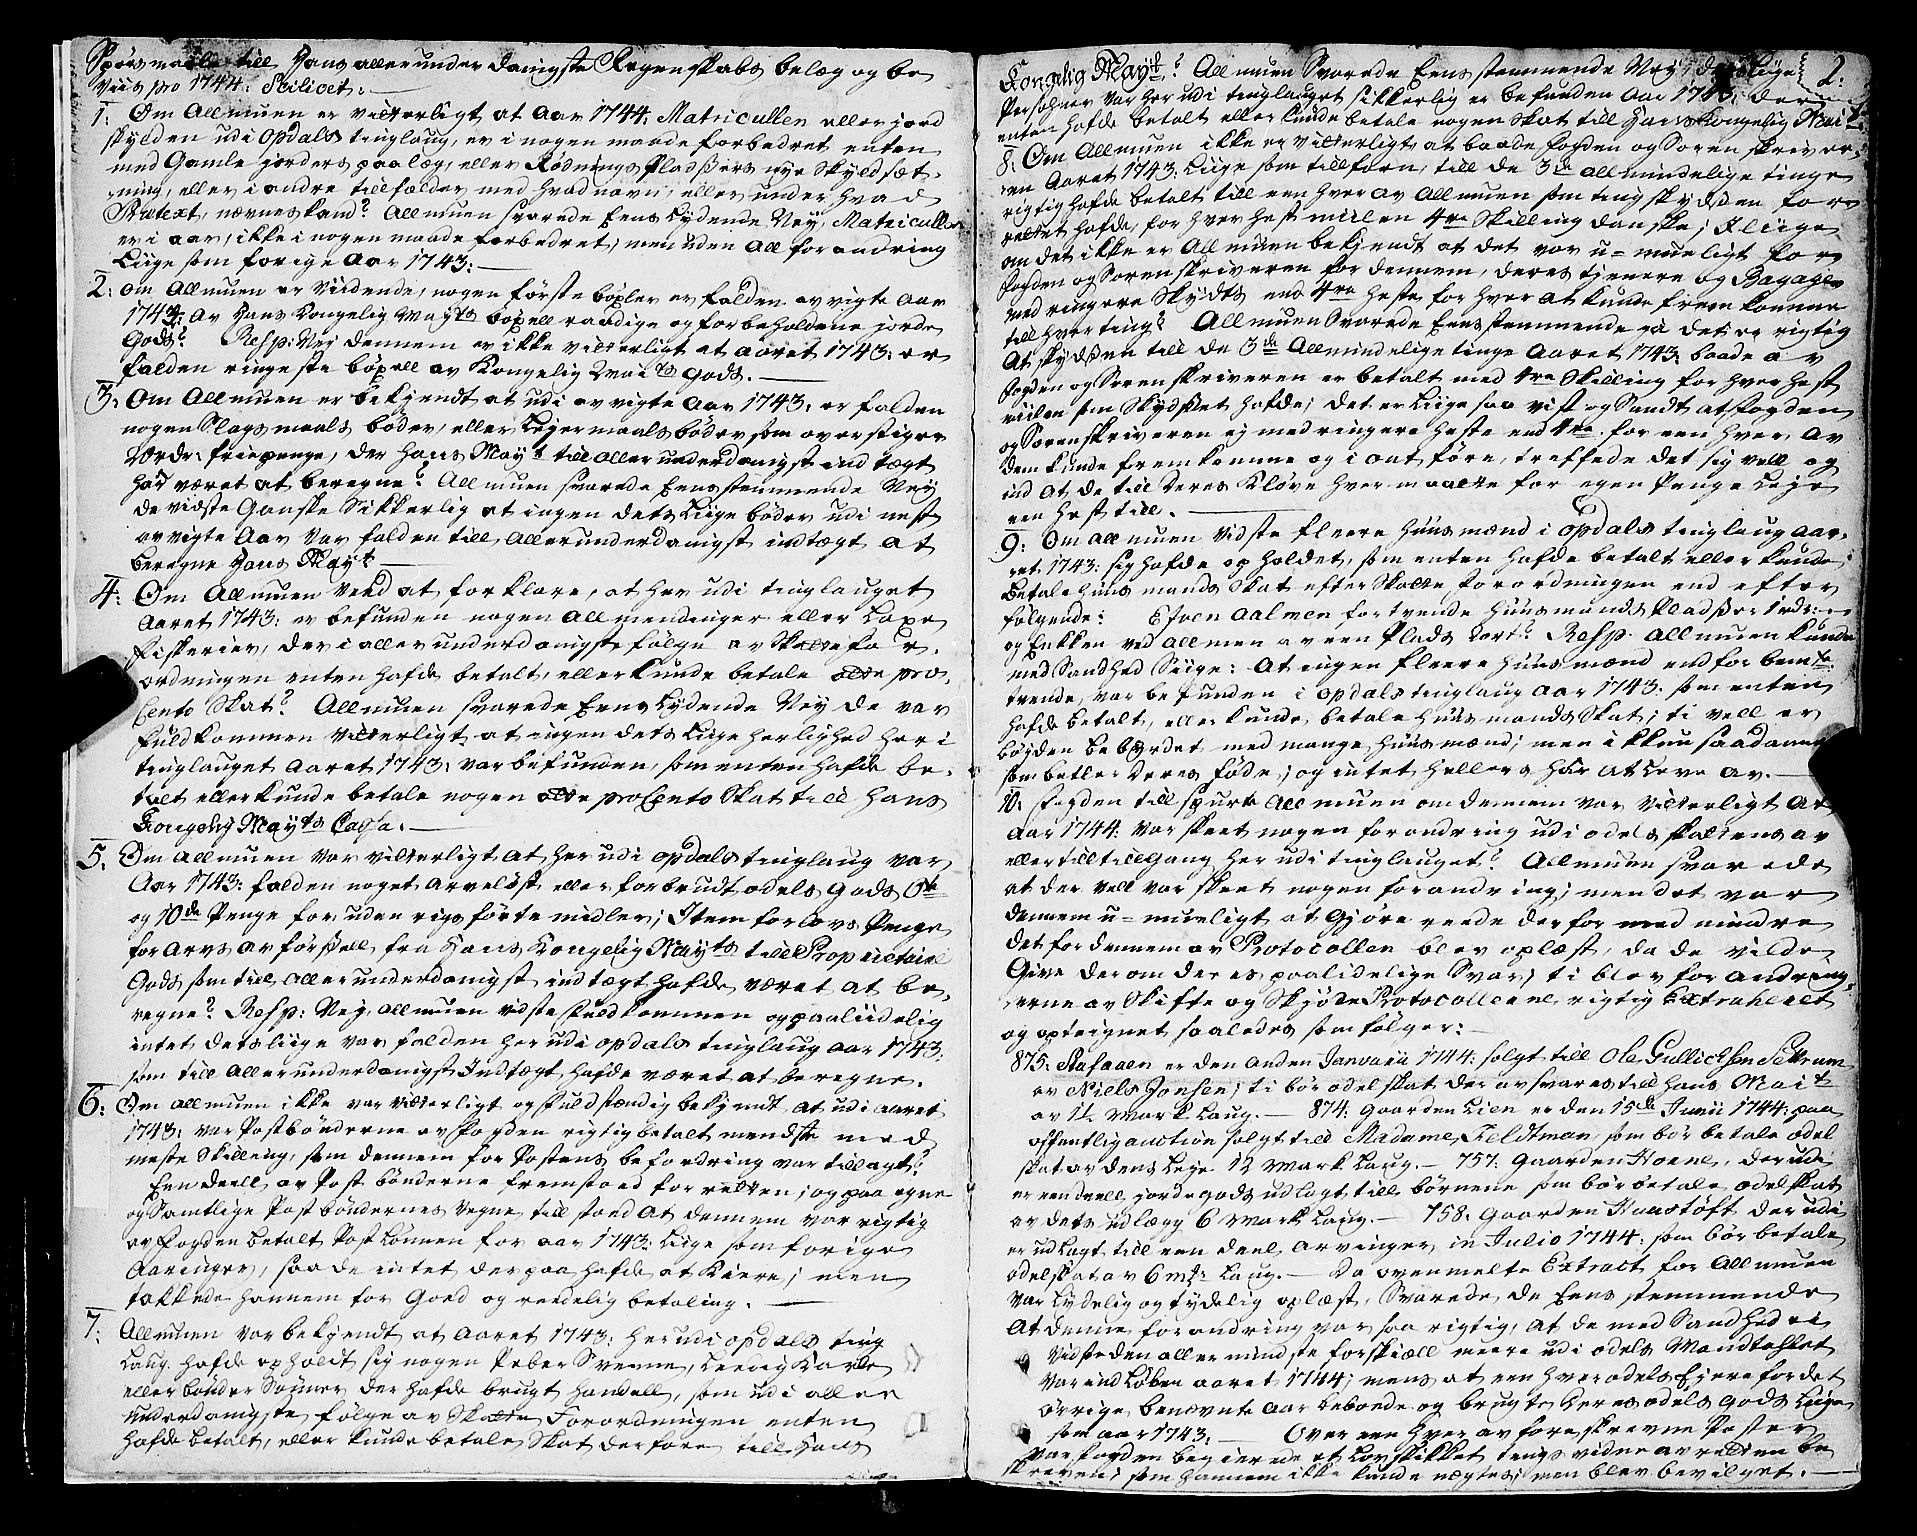 Spørsmaale till Hans allerunderdanigste Regenskabs belæg og be
viis pro 1744: Scilicet:
1: Om Allmuen er vitterligt at Aar 1744: Matricullen eller jord
skylden udi Opdals tinglaug, er i nogen maade forbedret enten
med Gamle Jorders paalæg, eller Rødnings Pladsers nye Skyldsæt-
ning, eller i andre tilfælder med hvad navn, eller under hvad
Prætext, nævnes kand? Allmuen svarede Eenslydende Ney, Matricullen
er i aar, ikke i nogen maade forbedret; men uden all forandring
Liige som forige Aar 1743:
2: Om Allmuen er viidende, nogen første bøxler er falden avvigte Aar
1743: av Hans Kongelig Mayts bøxell raadige og forbeholdene jorde
Gods? Resp: Nej dennem er ikke vitterligt at aaret 1743: er
falden ringeste bøxell av Kongelig Maits gods.
3: Om Allmuen er bekjendt at udi avvigte Aar 1743: er falden
nogen Slagsmaals bøder, eller Lejermaals bøder som overstiger
Ordr: friepenge, der Hans Mayt till allerunderdanigst indtægt
har været at beregne? Allmuen svarede Eensstemmende Ney
de vidste Ganske Sikkerlig at ingen dets Liige bøder udi nest
avvigte Aar var falden till allerunderdanigst indtægt at
beregne Hans Mayt
4: Om Allmuen veed at forklare, at her udi tinglauget
Aaret 1743: er befunden nogen Allmendinger eller Laxe
fiskerier, der i allerunderdanigst følge av Skattefor-
ordningen enten hafde betalt, eller kunde betale otte pro
Cento Skat? Allmuen svarede Eenslydende Ney de var
fuldkommen vitterligt at ingen dets Liige herlighed her i
tinglauget Aaret 1743: var befunden, som enten hafde be-
talt eller kunde betale nogen otte pro Cento Skat till Hans
Kongelig Mayts Cassa.
5: Om Allmuen var vitterligt at her udi Opdals tinglaug var
Aar 1743: falden noget arveløst eller forbrudt odels gods 6te
og 10de Penge for uden rigs førte midler; Item forlovs Penge
for arvs avførsell fra Hans Kongelig Mayts till Proprietaire
Gods som till allerunderdanigst indtægt hafde været at be-
regne? Resp: Nej, allmuen vidste fuldkommen og paaliidelig
intet dets liige var falden her udi Opdals tinglaug aar 1743:
som till allerunderdanigst Indtægt hafde været at beregne.
6: Om allmuen ikke var vitterligt og fuldstændig bekjendt at udi aaret
1743: var Postbønderne av fogden rigtig betalt mendste med
meste Skilling, som dennem for Postens befordring var tillagt?
Een deell av Post bønderne fremstoed for retten; og paa egne
og samtlige Postbøndernes vegne till stoed at dennem var rigtig
av fogden betalt Post Lønnen for aar 1743: Liige som forige
Aaringer, saa de intet der paa hafde at Kiere; men
takkede hannem for Goed og reedelig betaling.
7: Allmuen var bekjendt at Aaret 1743: her udi Opdals ting
Laug hafde opholdt sig nogen Peber Svenne, Leedig Karle
eller bønder Sønner der hafde brugt handell, som udi aller
underdanigste følge av Skatte Forordningen enten
hafde betalt, eller kunde betale Skat derfore till Hans
2:
Kongelig Mayt? Allmuen Svarede Eensstemmende Ney, dets Liige
Persohner var her udi tinglauget sikkerlig er befunden Aar 1743: der
enten hafde betalt eller kunde betale nogen Skat till Hans Kongelig Mait
8: Om Allmuen ikke er vitterligt at baade fogden og Sorenskriver
en Aaret 1743: Liige som tillforn, till de 3de allmindelige tinge
rigtig hafde betalt till een hver av Allmuen som tingskydsen for
rettet hafde, for hver hest miilen 4re Skilling danske; Iliige
om det ikke er Allmuen bekjendt at det var u-mueligt for
fogden og Sorenskriveren for dennem, deres tjenere og Bagage
med ringere Skyds end 4re heste for hver at kunde frem komme
till hver ting? Allmuen Svarede Eensstemmende ja det er rigtig
At skydsen till de 3de Allmindelige tinge Aaret 1743: baade av
fogden og Sorenskriveren er betalt med 4re Skilling for hver hest
miilen som Skydset hafde; det er Liige saa vist og Sandt at fogden
og Sorenskriveren ej med ringere heste end 4re for een hver av
dem kunde fremkomme og i ont føre, treffede det sig vell og
ind at de till deres Kløve hver maatte for egen Penge Leje
een hest till.
9: Om allmuen vidste fleere Huusmænd i Opdals tinglaug aar-
ret 1743: sig hafde opholdet, som enten hafde betalt eller kunde
betale huusmands Skat efter Skatte forordningen end efter
følgende: Efven Aalmen for tvende Huusmands Pladser 1 rdr:
og Enkken ved Allmen av een Plads 2ort? Resp. Allmuen kunde
med Sandhed Siige: At ingen fleere Huusmænd end for bemte
tvende, var befunden i Opdals tinglaug aar 1743: som enten
hafde betalt, eller kunde betale Huusmands Skat; ti vell er
bøjden bebyrdet med mange huusmænd; men ikkun saadanne
som betler deres føde; og intet hellers har at Leve av.
10: Fogden till spurte Allmuen om dennem var vitterligt at
aar 1744: var skeet nogen forandring udi odels skattens av
eller till tillgang her udi tinglauget? Allmuen svarede
at der vell var skeet nogen forandring; men det var
dennem u-mueligt at gjøre reede derfor med mindre
det for dennem av Protocollen blev oplæst, da de vilde
Give derom deres paalidelige Svar; ti blev forandring-
erne av Skifte og Skjøde Protocollerne rigtig Extraheret
og opteignet saaledes som følger:
875: Stafaaen er den anden Janvarii 1744: solgt till Ole Gullichsen Settrum
av Niels Jonsen; ti bør odelskat der avsvares till Hans Mait
av 1½ Mark Laug. – 874: Gaarden Lien er den 15de Junii 1744: paa
offentlig auction solgt till Madame Feldtman som bør betale odel
skat av dens Leje 12 Mark Laug. – 757: Gaarden Hoene, der udi
er een deell jordegods udlagt till børnene som bør betale odelskat
av dets udlægg 6 Mark Laug. – 758: Gaarden Haustøft der udi
er udlagt till een deel arvinger in Julio 1744: som bør betale
odelskat av 6 mk: Laug. – Da ovenmelte Extract for Allmuen
var Lydelig og tydelig oplæst, Svarede de Eensstemmende
At denne forandring var saa rigtig, at de med Sandhed ei
vidste den aller mindste forskiæll meere udi odels Mandtallet
var indløben aaret 1744; mens at een hver odels Ejere for det
øvrige benævnte aar beboede og brugte deres odels gods Liige
som aar 1743: Over een hver av foreskrevne Poster
var fogden begierende et Lovskikket tings vidne av retten be
skreven; som hannem ikke kunde nægtes; men blev bevilget.